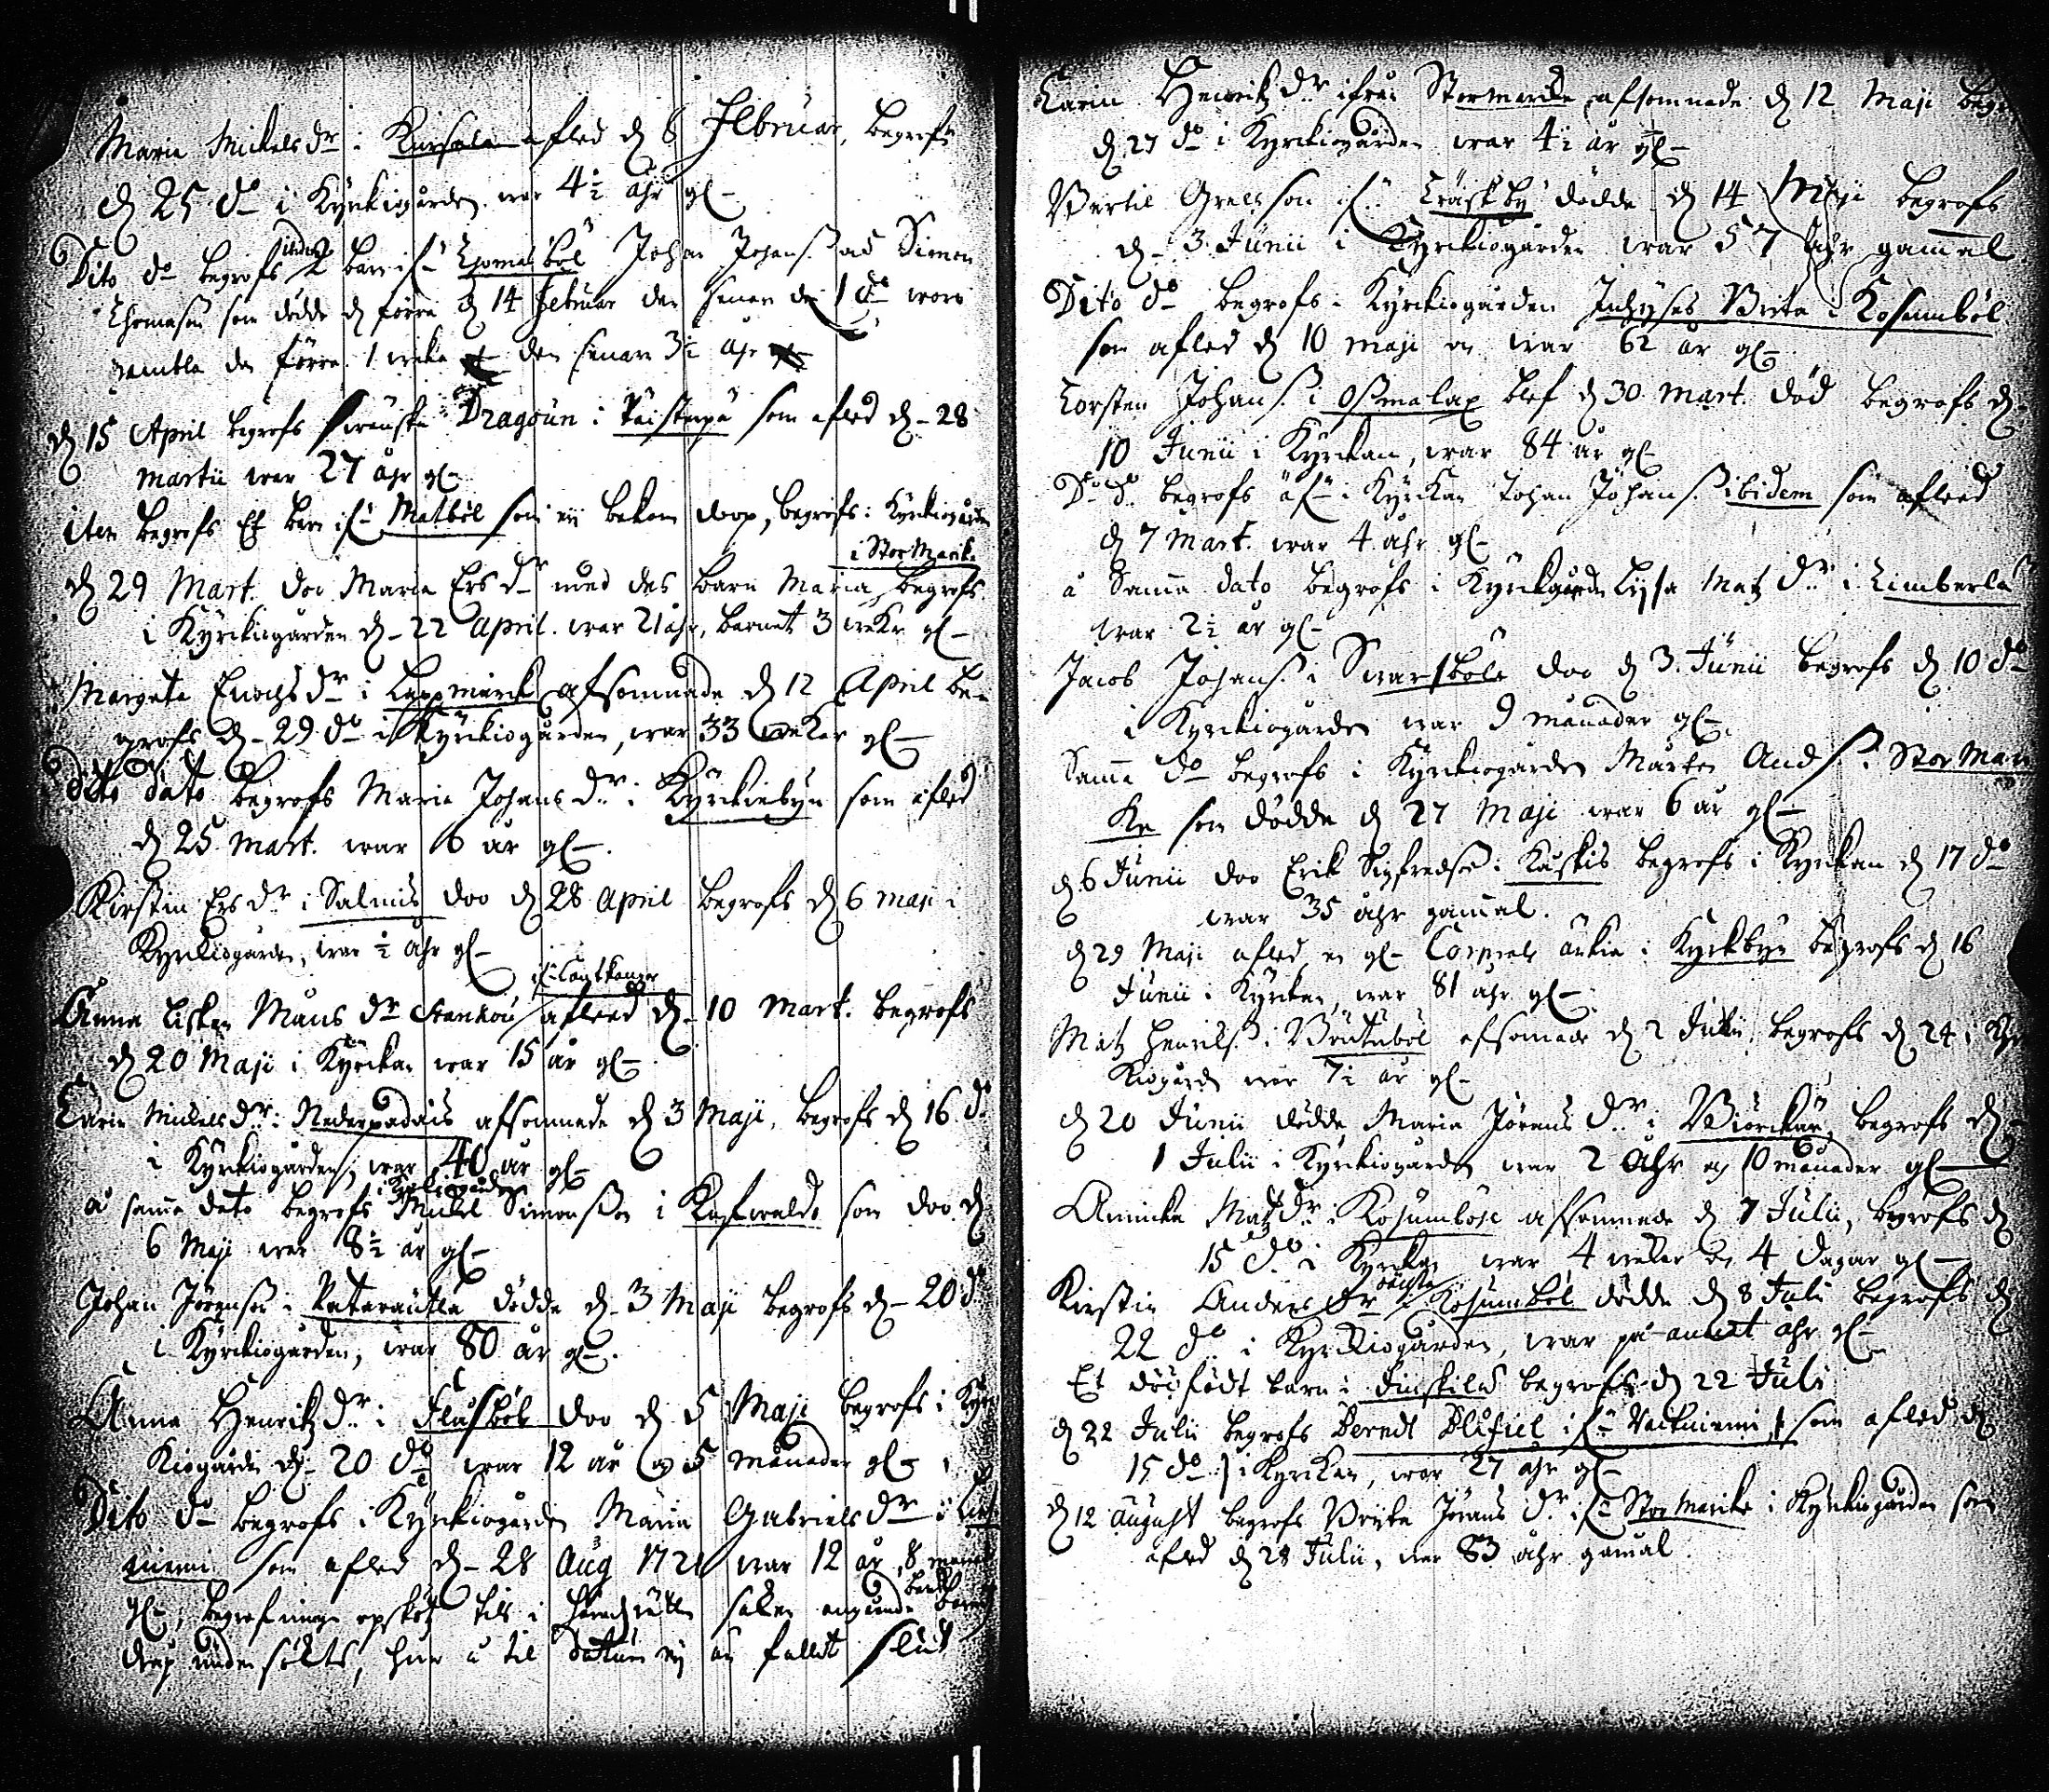 Maria Mickels dr i Kursala afled d 8 Februar, begrofs
d 25 do i Kyrkiogården war 4½ åhr gl
Dito do begrofs 2 barn ifr Thomasböl Johan Johans. och Simon
Thomason som dödde d förra d 14 Februar den senare d 1 do woro
gambla den förra 1 weka den senare 3½ åhr
d 15 April begrofs Dragoun i Päisterpä som afled d 28
Martii war 27 åhr gl
item begrofs Et barn ifr Malböl som eij bekom doop, begrofs i Kyrkiogården
i StorMarike
d 29 Mart. doo Maria Ers dr med des barn Maria, begrofs
i Kyrckiogården d 22 April. war 21 åhr, barnet 3 wekr gl
Margeta Enochs dr i Lappmärck afsomnade d 12 April be-
grofs d 29 do i Kyrkiogården, war 33 weker gl
dito dato begrofs Maria Johans dr i Kyrkiebyn som afled
d 25 Mart. war 6 år gl
Kirstin Ers dr i Salmis doo d 28 April begrofs d 6 maji i
Kyrkiogården, war ½ åhr gl
Anna Lisken Måns dr afleed d 10 Mart. begrofs
d 20 Maji i Kyrckan war 15 år gl
Carin Mickels dr i Nederpadais afsomnade d 3 Maji, begrofs d 16 do
i Kyrckiogården, war 40 år gl
i Kyrkiogården
å samma dato begrofs Mickel Simonsson i som doo d
6 Maji war 8½ år gl
Johan Jörenson i dödde d 3 Maji begrofs d 20 do
i Kyrckiogården, war 80 år gl
Anna Henrichz dr i Flasböl doo d 5 Maji begrofs i Kyr
kiogården d 20 do war 12 år och 5 månader gl
Dito do begrofs i Kyrckiogården Maria Gabriels dr i
niemi som afled d 28 Aug 1721 war 12 år, 8 månad
gl, begrafningen opskötz til i häradzrätten saken angående barne
drap undersökts, hwar å til datum eij är fallit slut
Carin Henrichz dr ifrån Stormarike afsomnade d 12 Maji begr
d 27 do i Kyrckiogården war 4½ år gl
Bertil Grelsson ifr Träskby dödde d 14 Maji begrofs
d 3 Junii i Kyrckiogården war 57 åhr gammal
Dito do begrofs i Kyrckiogården Brita i Kosumböl
som afled d 10 maji och war 62 år gl
Torsten Johans. i Ossmalax blef d 30 Mart. död begrofs d
10 Junii i Kyrckan, war 84 år gl
Do do begrofs i Kyrckan Johan Johans. ibidem som afleed
d 7 Mart. war 4 åhr gl
å Samma dato begrofs i Kyrckgården Lijsa Matz dr i Limberla
war 2½ år gl
Jacob Johans. i Swartböle doo d 3 Junii begrofs d 10 do
i Kyrckiogården war 9 månader gl
Samma do begrofs i Kyrckiogården Mårten And s. i StorMari
Ke som dödde d 27 Maji war 6 år gl
d 6 Junii doo Erik Sigfredss i Kaskis begrofs i Kyrckan d 17 do
war 35 åhr gammal.
d 29 Maji afled en gl Corprals änkia i Kyrckbyn begrofs d 16
Junii i Kyrckan, war 81 åhr gl
Matz Henrikss i afsomnade d 2 Junii begrofs d 24 i Kyr
kiogården war 7½ år gl
d 20 Junii dödde Maria Jörans dr i Biörckö, begrofs d
1 Julii i Kyrckiogården war 2 åhr och 10 månader gl
Annicka Matz dr i Kosumböle afsomnade d 7 Julii, begrofs d
15 do i Kyrckan war 4 weker och 4 dagar gl
Kirstin Anders dr i Kosumböl dödde d 8 Juli begrofs d
22 do i Kyrckiogården, war på annat åhr gl
Et dödfödt barn i Finskila begrofs d 22 Juli
d 22 Julii begrofs Berndt Blåfiel ifr Wackniemi, som afled d
15 do i Kyrckan, war 27 åhr gl
d 12 August begrofs Brita Jörans dr ifr StorMarike i Kyrckiogården som
afled d 28 Julii, war 83 åhr gamal